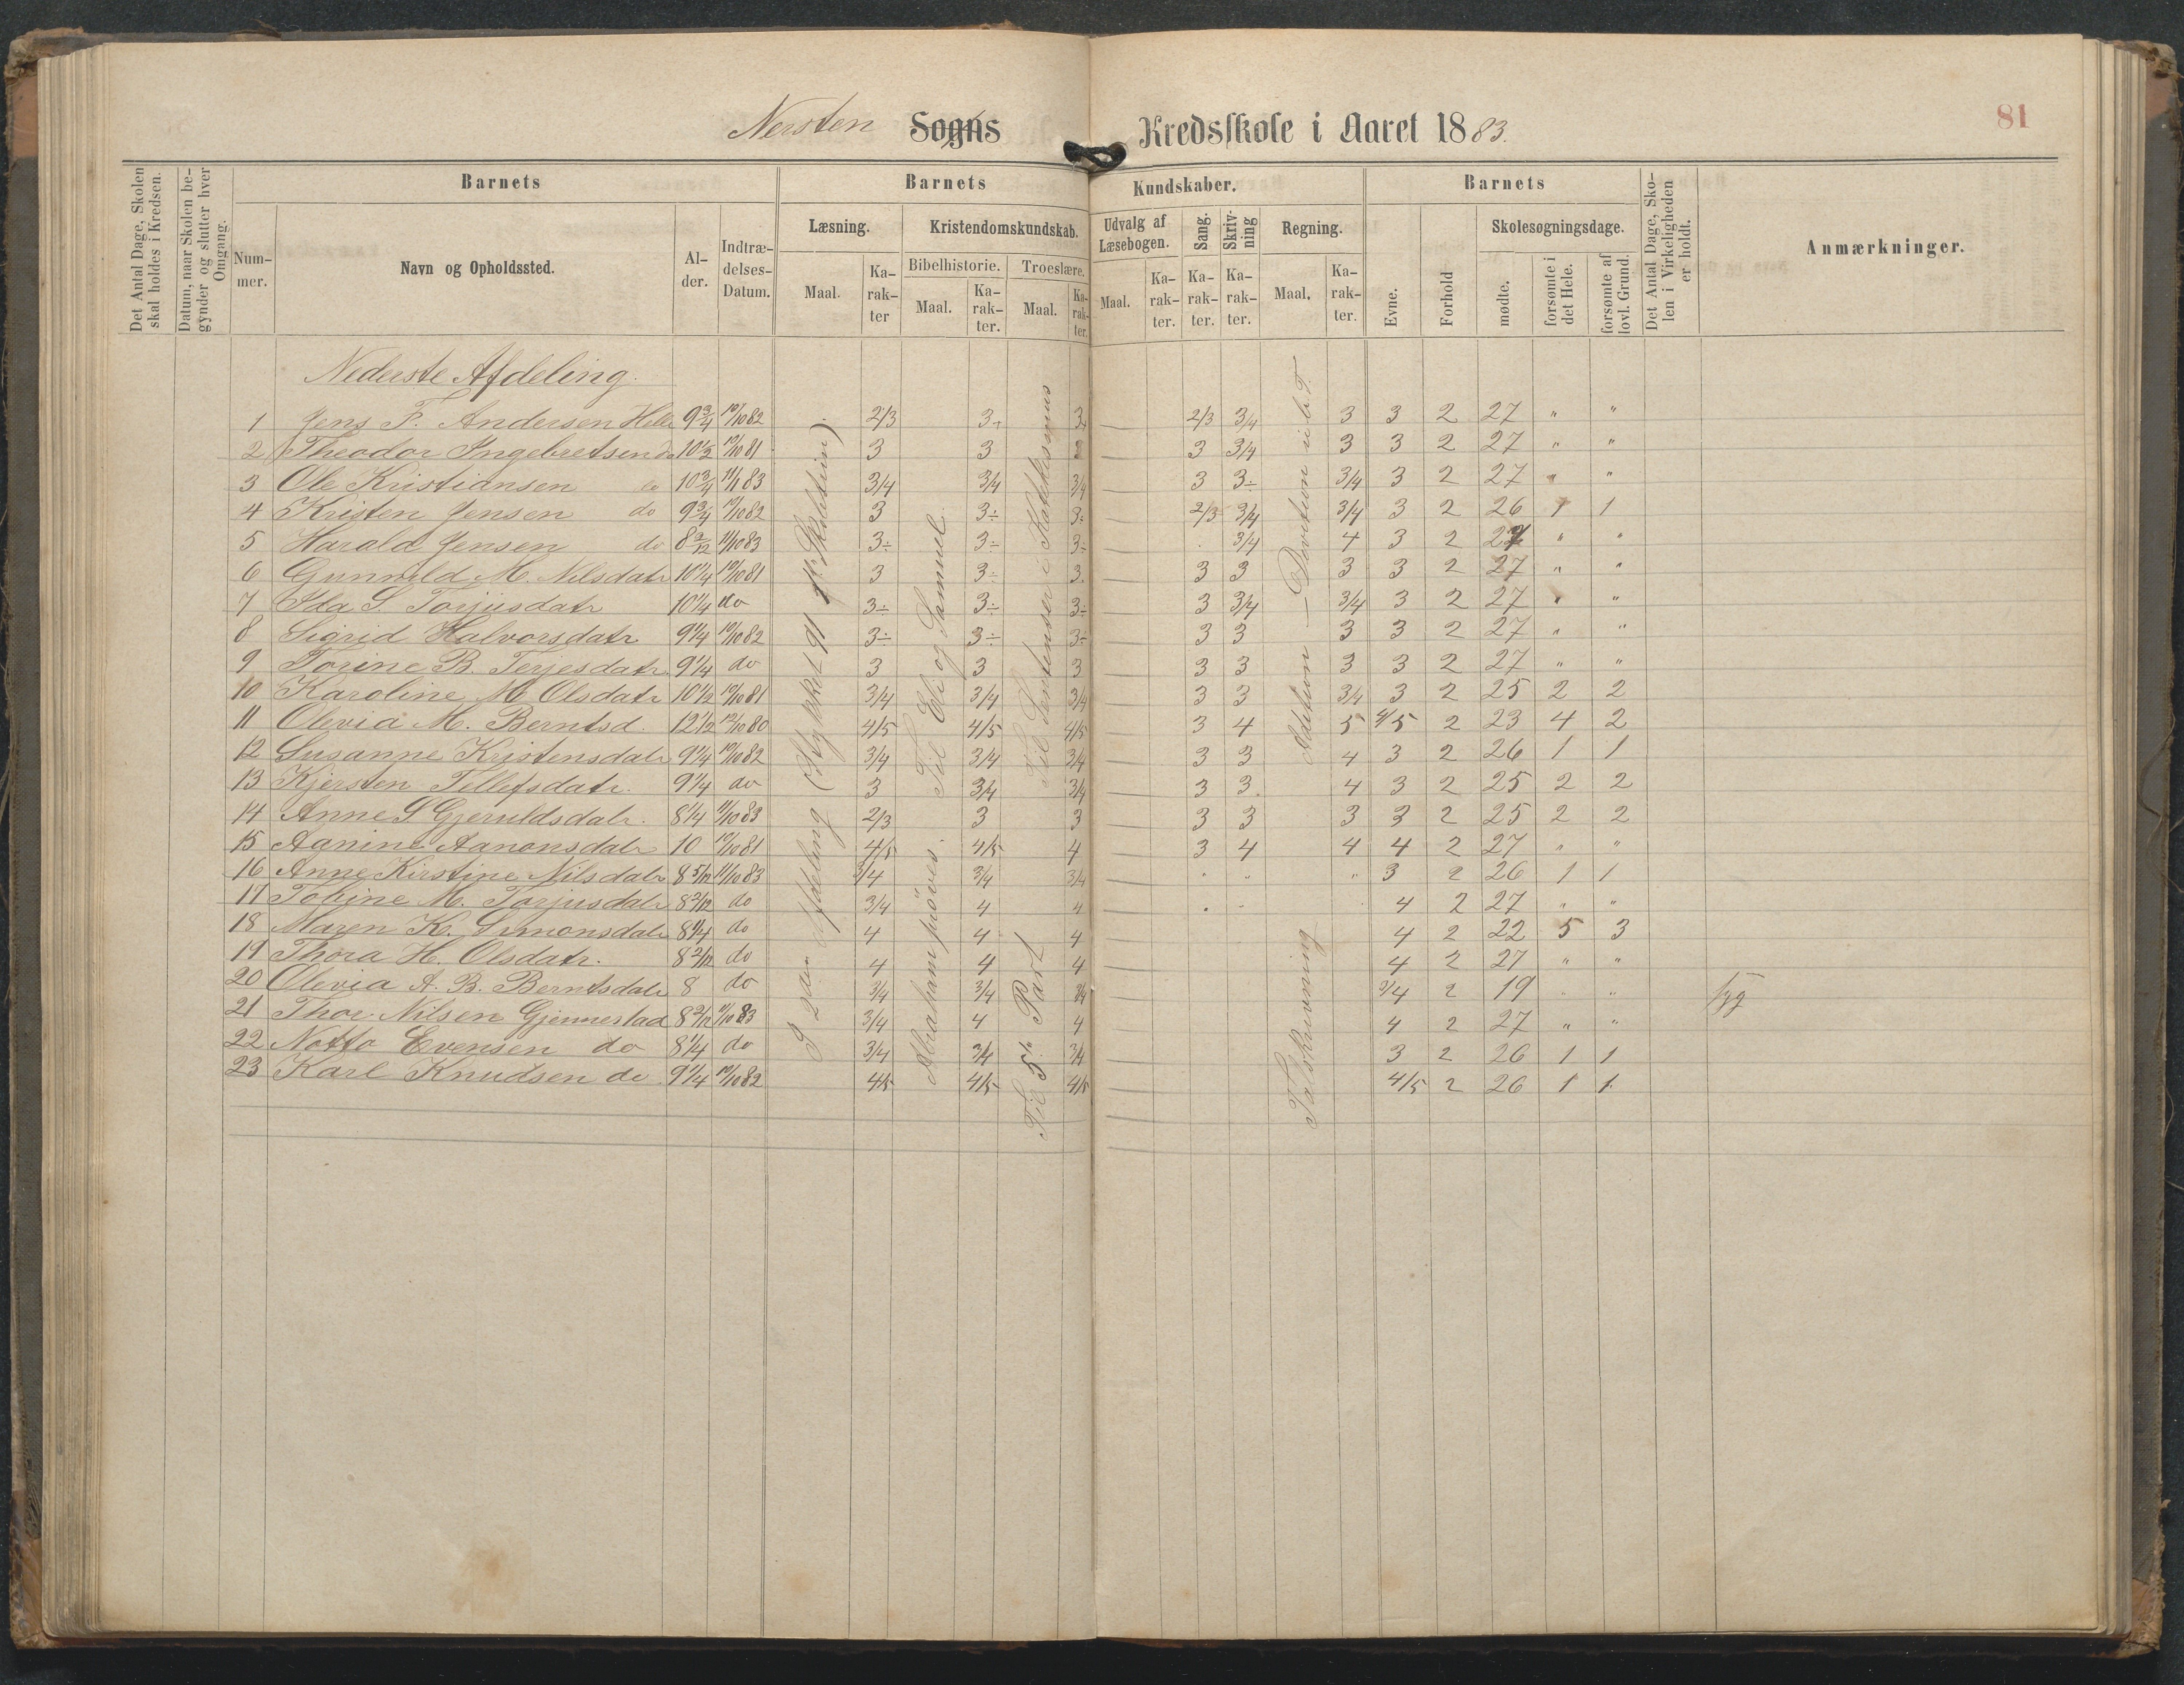 81
Nersten Sogns Kredsskole i Aaret 1883.
Det Antal Dage, Skolen skal holdes i Kredsen.
Datum, naar Skolen begynder og slutter hver Omgang.
Barnets Barnets Kundskaber. Barnets
Nummer. Navn og Opholdssted. Alder. Indtrædelses-Datum.
Læsning. Maal. Karakter
Kristendomskundskab. Bibelhistorie. Maal. Karakter. Troeslære. Maal. Karakter.
Udvalg af Læsebogen. Maal. Karakter.
Sang. Karakter. Skrivning Karakter.
Regning. Maal. Karakter.
Evne. Forhold
Skolesøgningsdage. mødte. forsømte i det Hele. forsømte af lovl. Grund.
Det Antal Dage, Skolen i Virkeligheden er holdt.
Anmærkninger.
Nederste Afdeling.
1 Jens F. Andersen Helle 9 3/4 10/10 82 2/3 3 3 2/3 3/4 3 3 2 27 " "
2 Theodor Ingebretsen do 10 1/2 10/10 81 3 3 3 3/4 3 3 2 27 " "
3 Ole Kristiansen do 10 3/4 11/1 83 3/4 3/4 3/4 3 3÷ 3/4 3 2 27 " "
4 Kristen Jensen do 9 3/4 10/10 82 3 3÷ 3÷ 2/3 3/4 3/4 3 2 26 1 1
5 Harald Jensen do 8 2/12 11/10 83 3÷ 3÷ 3÷ 3/4 4 3 2 27 " "
6 Gunnild M. Nilsdatr 10 1/4 10/10 81 3 3÷ 3 3 3 3 3 2 27 " "
7 Ida S. Torjusdatr 10 1/4 do 3÷ 3÷ 3÷ 3 3/4 3/4 3 2 27 " "
8 Sigrid Halvorsdatr 9 1/4 10/10 82 3÷ 3÷ 3÷ 3 3 3 3 2 27 " "
9 Torine B. Terjesdatr 9 1/4 do 3 3 3 3 3 3 3 2 27 " "
10 Karoline M Olsdatr 10 1/2 10/10 81 3/4 3/4 3/4 3 3 3/4 3 2 25 2 2
11 Olevia M. Berntsd. 12 1/2 12/10 80 4/5 4/5 4/5 3 4 5 4/5 2 23 4 2
12 Susanne Kristensdatr 9 1/4 10/10 82 3/4 3/4 3/4 3 3 4 3 2 26 1 1
13 Kjersten Tellefsdatr. 9 1/4 do 3 3/4 3/4 3 3. 4 3 2 25 2 2
14 Anne S Gjeruldsdatr. 8 1/4 11/10 83 2/3 3 3 3 3 3 3 2 25 2 2
15 Aanine Aanonsdatr 10 10/10 81 4/5 4/5 4 3 4 4 4 2 27 " "
16 Anne Kirstine Nilsdatr 8 5/12 11/10 83 3/4 3/4 3/4 " " " 3 2 26 1 1
17 Tobine M. Torjusdatr 8 2/12 do 3/4 4 4 4 2 27 " "
18 Maren K. Simonsdatr 8 1/4 do 4 4 4 4 2 22 5 3
19 Thora H. Olsdatr. 8 2/12 do 4 4 4 4 2 27 " "
20 Olevia A. B. Berntsdatr 8 do 3/4 3/4 3/4 3/4 2 19 " " syg
21 Thor Nilsen Gjennestad 8 2/12 11/10 83 3/4 4 4 4 2 27 " "
22 Notto Evensen do 8 1/4 do 3/4 3/4 3/4 3 2 26 1 1
23 Karl Knudsen do 9 1/4 10/10 82 4/5 4/5 4/5 4/5 2 26 1 1.
I 2den Afdeling (Stykket 91
Til Eli og Samuel.
Abraham prøves.
Til Sentenser i Katekismus
Til 5te Part
Adetion — Devition
Talskrivning